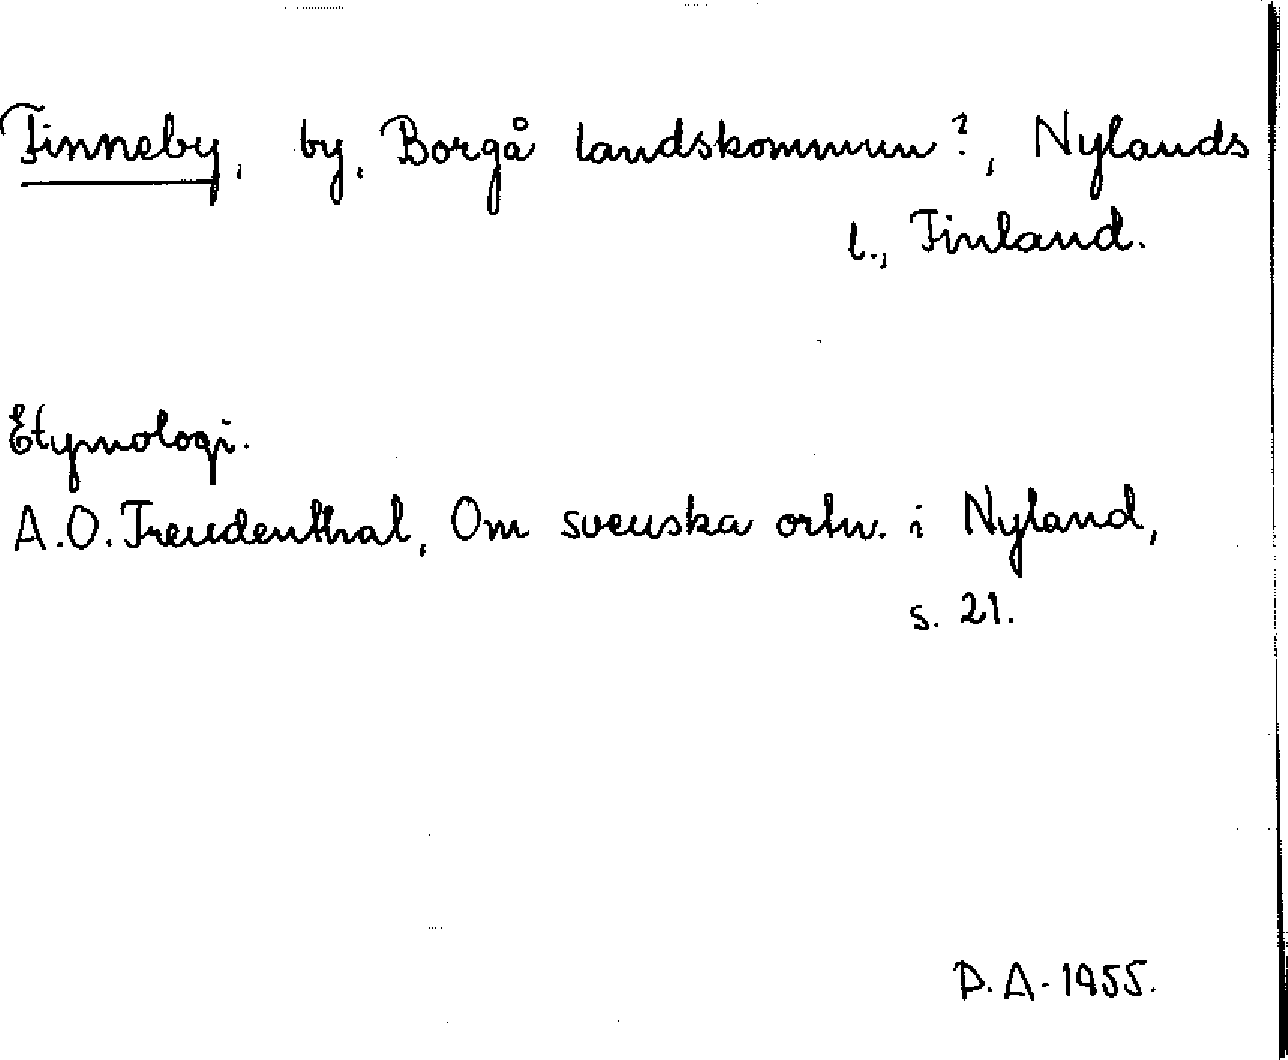 Finneby, by, Borgå landskommun?, Nylands
l., Finland.
Etymologi.
A.O. Freudenthal, Om svenska ortn. i Nyland,
s. 21.
D.A. 1955.